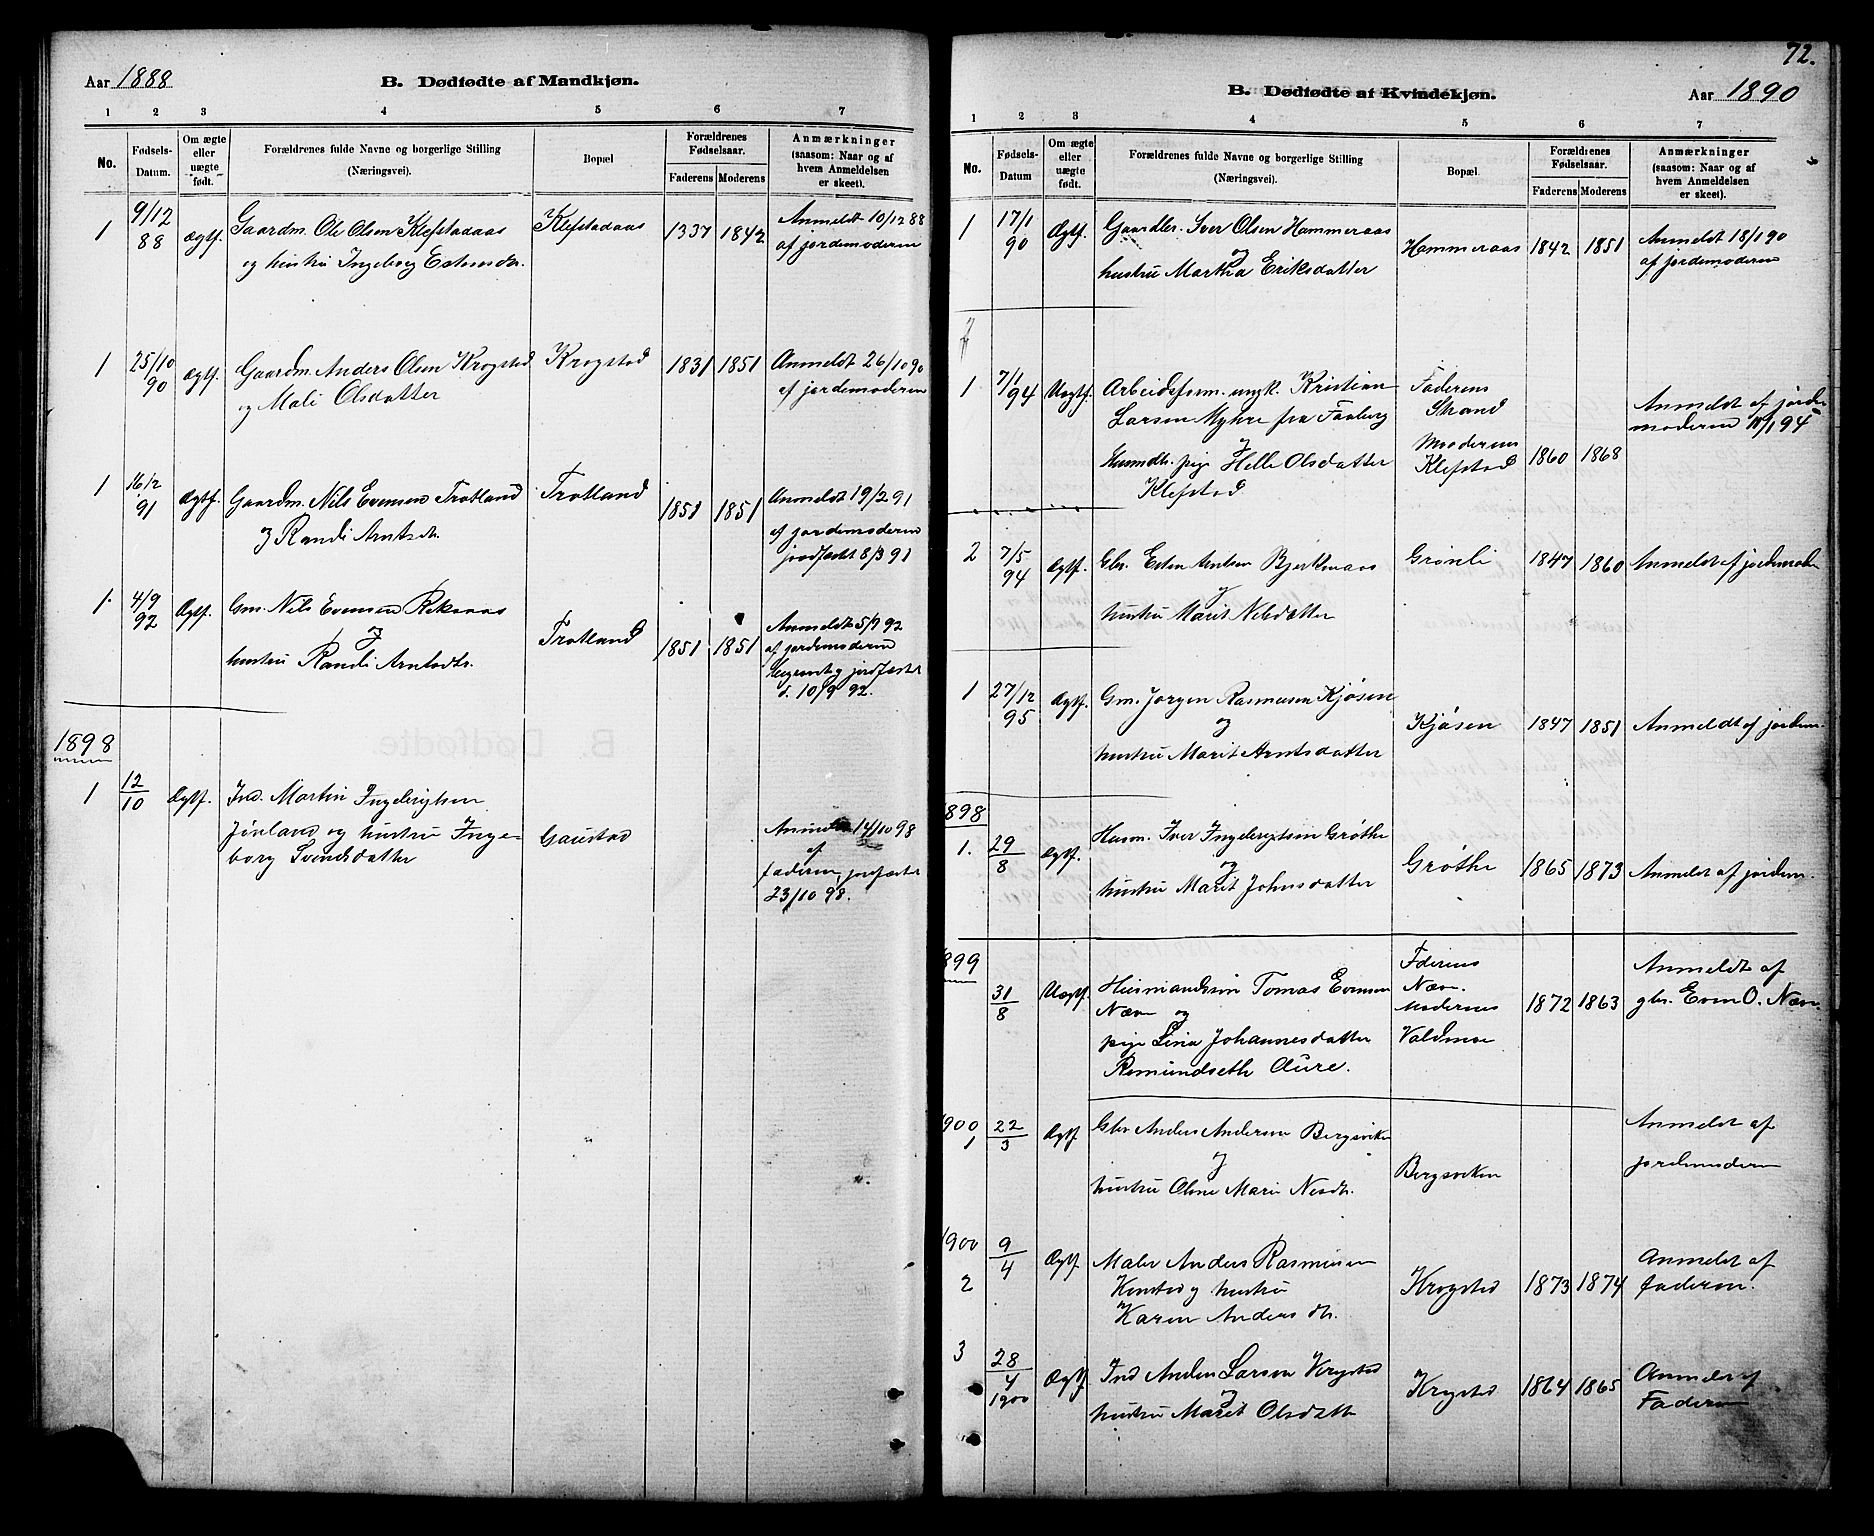 Aar 1888
B. Dødfødte af Mandkjøn.
1 2 3 4 5 6 7
No.
Fødsels-
Datum.
Om ægte
eller
uægte
født.
Forældrenes fulde Navne og borgerlige Stilling
(Næringsvei).
Bopæl
Forældrenes
Fødselsaar.
Faderens Moderens
Anmærkninger
(saasom: Naar og af
hvem Anmeldelsen
er skeet).
1 9/12 88 Ægtf. Gaardm. Ole Olsen Klefstadaas
og hustru Ingeborg
Klefstadaas 1337 1842
Anmeldt 10/12 88
af jordemoderen
1 25/10 90 Ægtf. Gaardm. Anders Olsen Krogstad
og Mali Olsdatter
Krogstad 1831 1851
Anmeldt 26/10 90
af jordemoderen
1 16/2 91 Ægtf. Gaardm. Nils Evensen Trotland
og Randi Arntsdr.
Trotland 1851 1851
Anmeldt 19/2 91
af jordemoderen
jordfæstet 8/3 91
1. 4/9 92 Ægtf. Gm. Nils Evensen Reksaas
og
hustru Randi
Trotland 1851 1851
Anmeldt 5/9 92
af jordemoderen
begravet og jordfæstet
d. 10/9 92.
1898
1 12/10 Ægtf. Ind. Martin Ingebrigtsen
og hustru Inge-
borg Svendsdatter
Gaustad
14/10 98
af
faderen, jordfæstet
23/10 98.
72.
B. Dødfødte af Kvindekjøn.
Aar 1890
1 2 3 4 5 6 7
No.
Fødsels-
Datum
Om ægte
eller
uægte
født.
Forældrenes fulde Navne og borgerlige Stilling
(Næringsvei).
Bopæl.
Forældrenes
Fødselsaar.
Faderens Moderens
Anmærkninger
(saasom: Naar og af
hvem Anmeldelsen
er skeet).
1 17/1 90 Ægtf. Gaardbr. Iver Olsen Hammeraas
og
hustru Martha Eriksdatter
Hammeraas 1842 1851
Anmeldt 18/1 90
af jordemoderen
1 7/1 94 Uægtf. Arbeidsform. ungk. Kristian
Larsen Myhre fra Faaberg
og
pige Helle Olsdatter
Klefstad
Faderens
Strand
Moderens
Klefstad
1860 1868
Anmeldt af jorde-
moderen
2 7/5 94 Ægtf. Gbr. Esten Arntsen Bjerkaas
og
hustru Marit Nilsdatter
Grønli 1847 1860 Anmeldt af jordemoder
1 27/12 95 Ægtf. Gm. Jørgen Rasmussen Kjøsen
og
hustru Marit Arntsdatter
Kjøsen 1847 1851 Anmeldt af jordem.
1898
1. 29/8 Ægtf. Husm. Iver Ingebrigtsen Grøthe
og
hustru Marit Johnsdatter
Grøthe 1865 1873 Anmeldt af jordem.
899
31/8 Uægtf. Husmandssøn Tomas Evensen
Næve og
pige Lina Johannesdatter
Romundseth Aure.
Faderens
Næve.
Moderens
Valdmoe
1872 1863
Anmeldt af
gbr. Even O. Næve
900
1 22/3 Ægtf Gbr Anders Andersen Bergsviken
og
hustru Oline Marie
Bergsviken
Anmeldt af
jordemoderen
1900
2 9/4 Ægtf Maler Anders Rasmussen
og hustru
Karen Anders dr.
Krogstad 1873 1874
Anmeldt af
faderen.
3 28/4 1900 Ægtf Ind Anders Larsen Krogstad
og
hustru Marit Olsdatt
Krogstad 1864 1865
Anmeldt af
Faderen